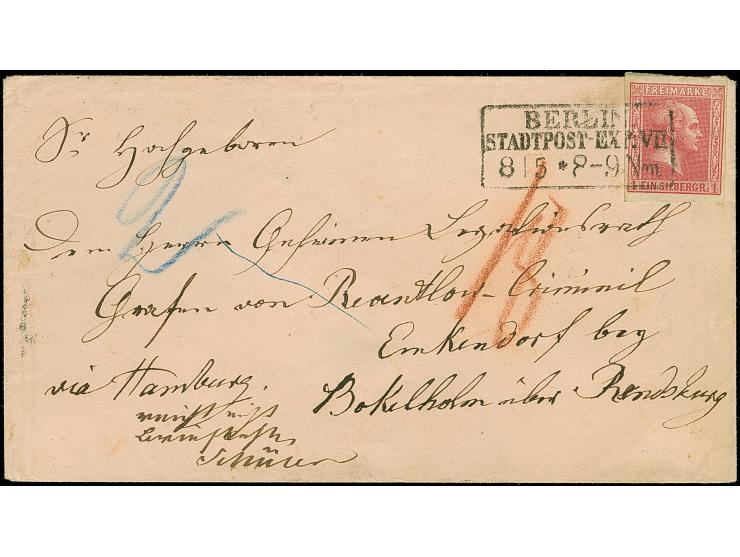 BERLIN
STADTPOST-EXP. VII
8 | 5 * 8-9 Nm
FREIMARKE
1 EIN SILBERGR. 1
Sr Hochgeboren
2
Dem Herrn Geheimen Legationsrath
Grafen von Reventlow-Criminil
Emkendorf bey
via Hamburg.
Bokelholm über Rendsburg
reicht nicht